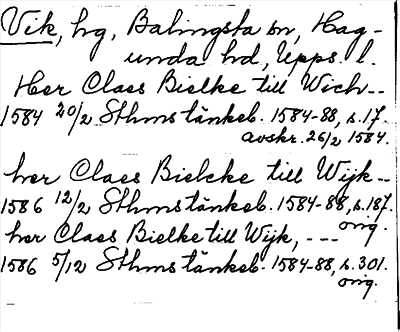 Vik, hg, Balingsta sn, Hag-
unda hd, Upps. l.
Her Claes Bielke till Wich--
1584 20/2 Sthms tänkeb. 1584-88, s.17.
avskr. 26/2 1584.
her Claes Bielcke till Wijk--
1586 12/2 Sthms tänkeb. 1584-88, s.187.
orig.
her Claes Bielke till Wijk, ---
1586 5/12 Sthms tänkeb. 1584-88, s.301.
orig.